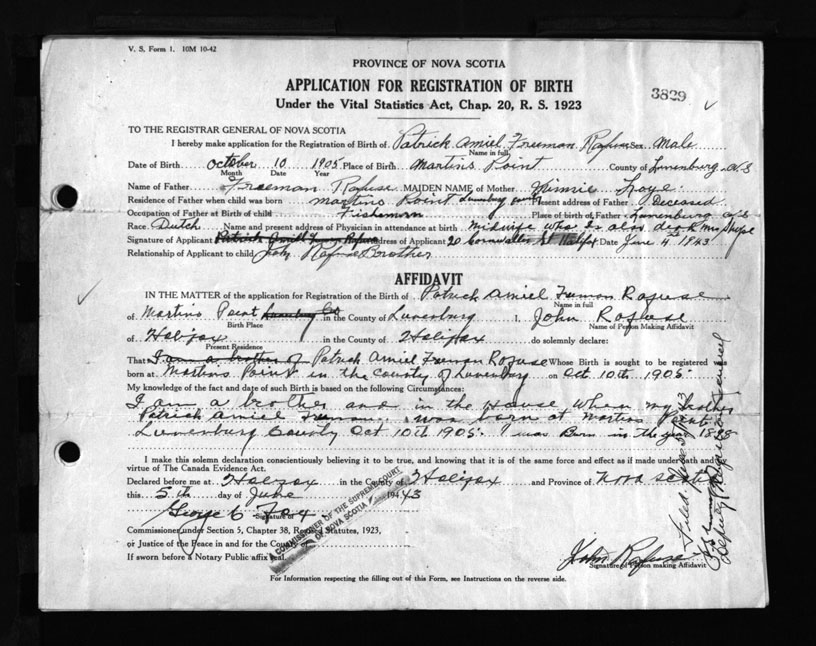 V. S. Form 1. 10M 10-42
PROVINCE OF NOVA SCOTIA
APPLICATION FOR REGISTRATION OF BIRTH
3829
Under the Vital Statistics Act, Chap. 20, R. S. 1923
TO THE REGISTRAR GENERAL OF NOVA SCOTIA
I hereby make application for the Registration of Birth of Patrick Amiel Freeman Rafuse Sex Male
Name in full
Date of Birth October 10 1905 Place of Birth Martins Point County of Lunenburg N.S
Month Date Year
Name of Father Freeman Rafuse MAIDEN NAME of Mother Minnie
Residence of Father when child was born Martins Point Lunenburg County Present address of Father Deceased
Occupation of Father at Birth of child Fisherman Place of birth of Father Lunenburg N.S
Race Dutch Name and present address of Physician in attendance at birth Midwife who is also dec Mrs
Signature of Applicant Patrick Address of Applicant 20 Cornwallis St Halifax Date June 4 1943
Relationship of Applicant to child John Rafuse Brother
AFFIDAVIT
IN THE MATTER of the application for Registration of the Birth of Patrick Amiel Freeman Rafuse
Name in full
of Martins Point Lunenburg Co in the County of Lunenburg I, John Rafuse
Birth Place Name of Person Making Affidavit
of Halifax in the County of Halifax do solemnly declare:
Present Residence
That I am a brother of Patrick Amiel Freeman Rafuse Whose Birth is sought to be registered was
born at Martins Point in the County of Lunenburg on Oct 10th 1905.
My knowledge of the fact and date of such Birth is based on the following Circumstances:
I am a brother and in the House when my brother
Patrick Amiel Freeman was born at Martins Point
Lunenburg County Oct 10th 1905. I was Born in the year 1898
I make this solemn declaration conscientiously believing it to be true, and knowing that it is of the same force and effect as if made under oath and by
virtue of The Canada Evidence Act.
Declared before me at Halifax in the County of Halifax and Province of Nova Scotia
this 5th day of June 1943
George C Fox
Signature of
A COMMISSIONER OF THE SUPREME COURT
OF NOVA SCOTIA
Commissioner under Section 5, Chapter 38, Revised Statutes, 1923,
or Justice of the Peace in and for the County of
If sworn before a Notary Public affix seal.
John Rafuse
Signature of Person making Affidavit
For Information respecting the filling out of this Form, see Instructions on the reverse side.
Filed
Deputy Registrar General